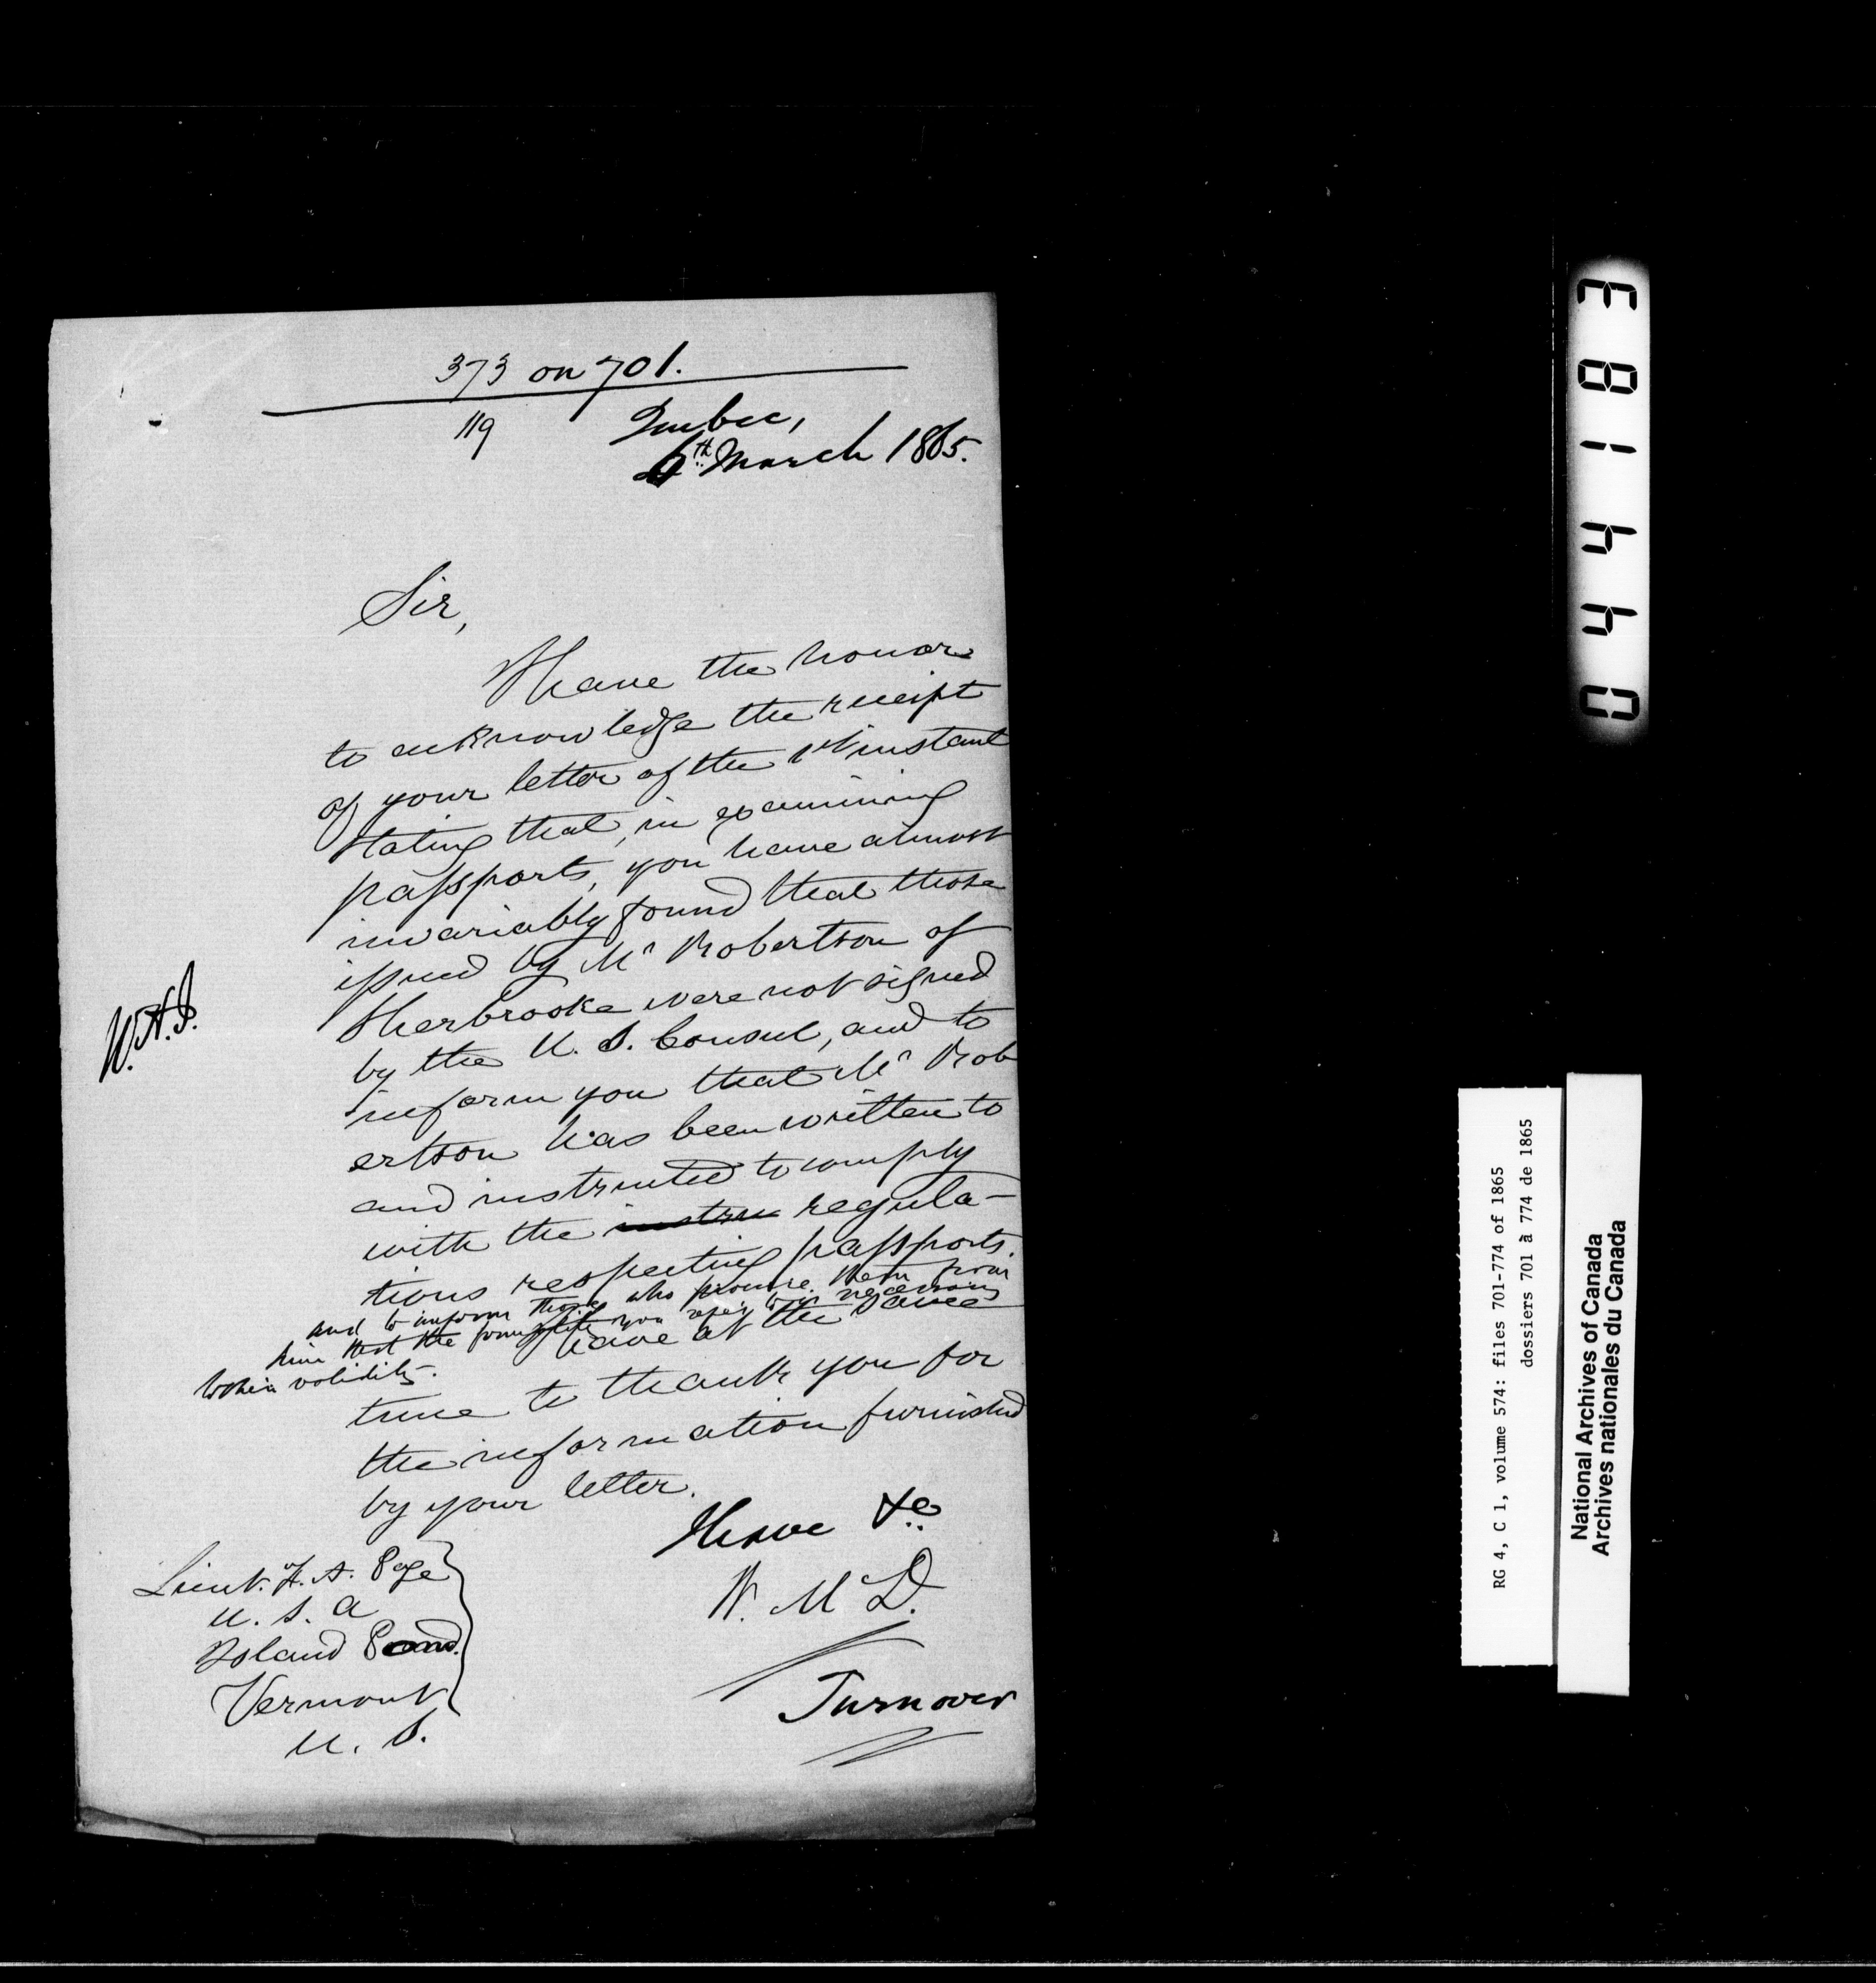 373 on 701.
119
Quebec,
6th March 1865.
Sir,
I have the honor
to acknowledge the receipt
of your letter of the 1st instant
stating that, in examining
passports, you have almost
invariably found that those
issued by Mr Robertson of
Sherbrooke were not signed
by the U. S. Consul, and to
inform you that Mr Rob
ertson has been written to
and instructed to comply
with the instru regula-
tions respecting passports.
and to inform those who procure them from
him that the formality you refer to is necessary
to their validity.
I have at the same
time to thank you for
the information furnished
by your letter.
I have &c
W. M D.
Turnover
W. A. H.
Lieut. A. Page
U. S. A
Island Pond.
Vermont
U. S.
044183
RG 4, C 1, volume 574: files 701-774 of 1865
dossiers 701 à 774 de 1865
National Archives of Canada
Archives nationales du Canada